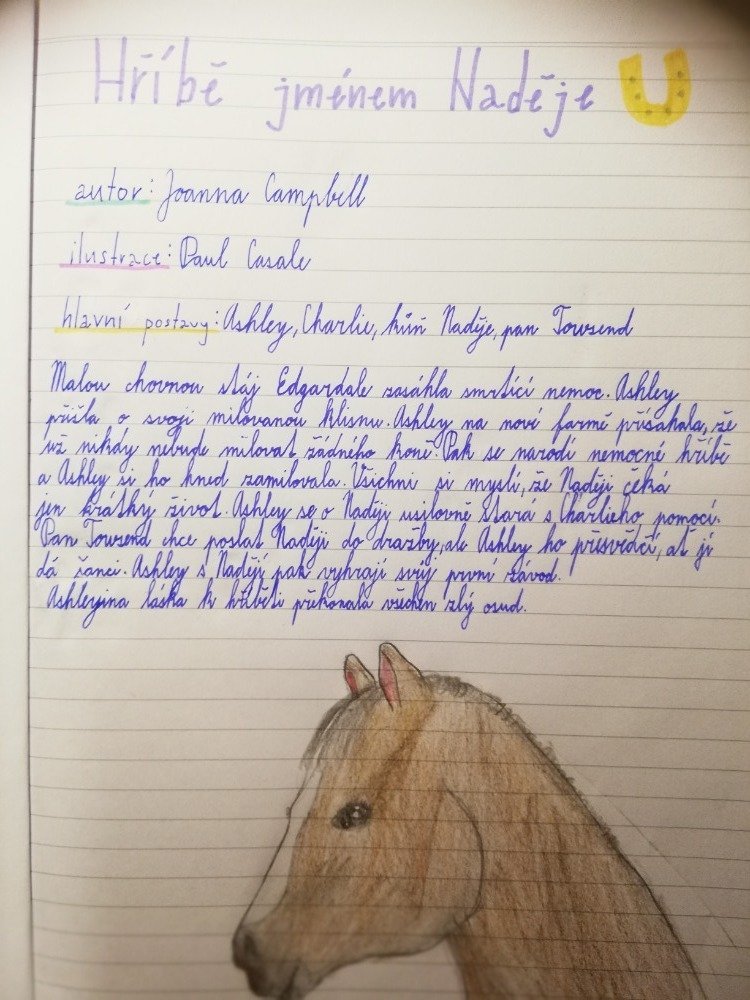 Hříbě jménem Naděje
autor: Joanna Campbell
ilustrace: Paul Casale
hlavní postavy: Ashley, Charlie, kůň Naděje, pan Towsend
Malou chovnou stáj Edgardale zasáhla smrtící nemoc. Ashley
přišla o svoji milovanou klisnu. Ashley na nové farmě přísahala, že
už nikdy nebude milovat žádného koně. Pak se narodí nemocné hříbě
a Ashley si ho hned zamilovala. Všichni si myslí, že Naději čeká
jen krátký život. Ashley se o Naději usilovně stará s Charlieho pomocí.
Pan Towsend chce poslat Naději do dražby, ale Ashley ho přesvědčí, ať jí
dá šanci. Ashley s Nadějí pak vyhrají svůj první závod.
Ashleyina láska k hříběti překonala všechen zlý osud.